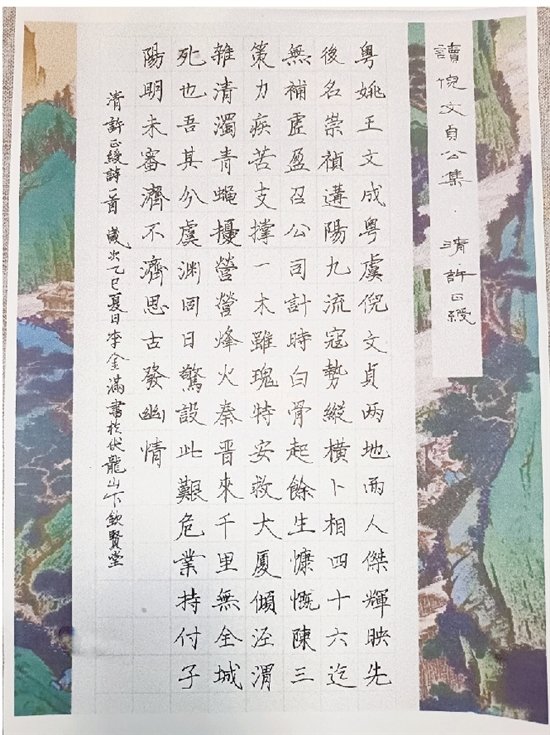 讀倪文貞公集·清許正綬
粵姚王文成粵虞倪文貞兩地兩人傑輝映先
後名崇禎遘陽九流寇勢縱橫卜相四十六迄
無補虛盈召公司計時白骨起餘生慷慨陳三
策力疾苦支撐一木雖瑰特安救大廈傾涇渭
雜清濁青蠅擾營營烽火秦晉來千里無全城
死也吾其分虞淵同日驚設此艱危業持付子
陽明未審濟不濟思古發幽情
清許正綬詩一首 歲次乙巳夏日李金滿書於伏龍山下欽賢堂